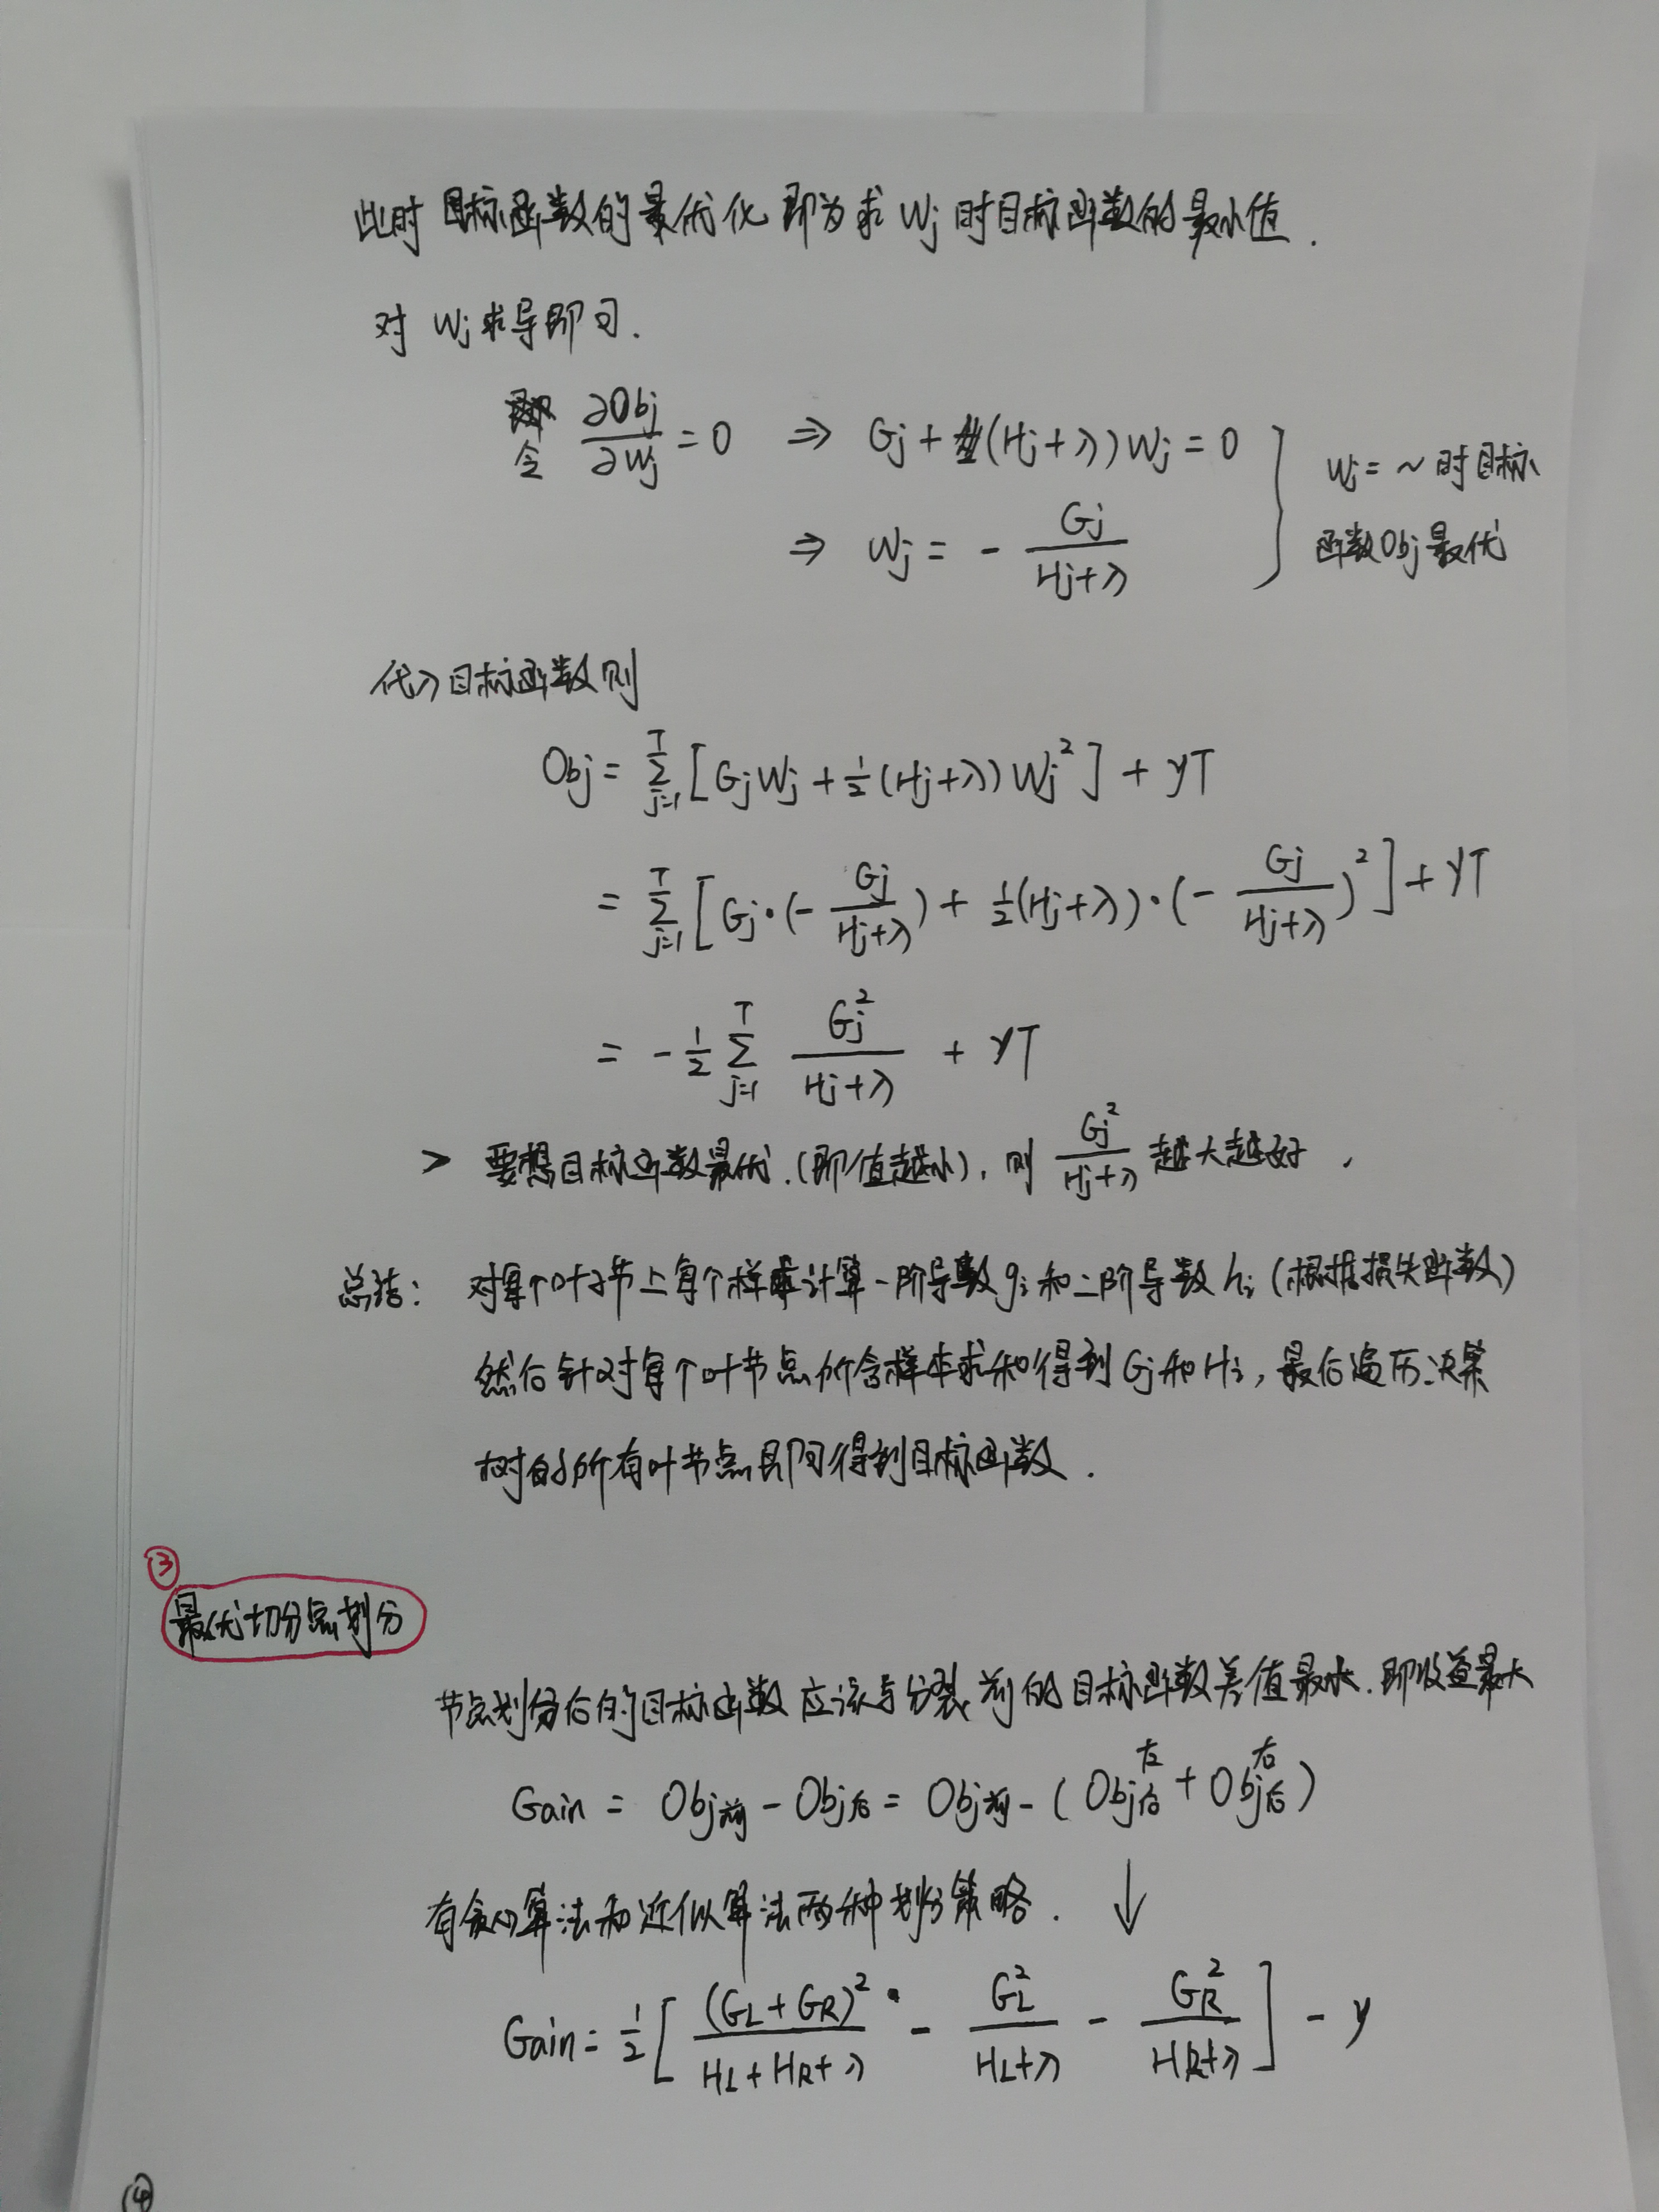 此时目标函数的最优化即为求 Wj 时目标函数的最小值.
对 Wj 求导即可.
令 ∂Obj/∂Wj = 0 ⇒ Gj + (Hj+λ)Wj = 0
⇒ Wj = - Gj/(Hj+λ)
Wj = ~ 时目标
函数Obj最优
代入目标函数则
Obj = Σ_{j=1}^{T} [GjWj + 1/2 (Hj+λ)Wj²] + γT
= Σ_{j=1}^{T} [Gj·(- Gj/(Hj+λ)) + 1/2(Hj+λ)·(- Gj/(Hj+λ))²] + γT
= - 1/2 Σ_{j=1}^{T} Gj²/(Hj+λ) + γT
> 要想目标函数最优.(即值越小), 则 Gj²/(Hj+λ) 越大越好.
总结: 对每个叶子节上每个样本计算一阶导数 gi 和二阶导数 hi (根据损失函数)
然后针对每个叶节点所含样本求和得到 Gj 和 Hi, 最后遍历决策
树的所有叶节点即可得到目标函数.
③
最优切分点划分
节点划分后的目标函数应该与分裂前的目标函数差值最大. 即收益最大
Gain = Obj前 - Obj后 = Obj前 - (Obj后左 + Obj后右)
↓
有贪心算法和近似算法两种划分策略.
Gain = 1/2 [ (GL+GR)²/(HL+HR+λ) - GL²/(HL+λ) - GR²/(HR+λ) ] - γ
④